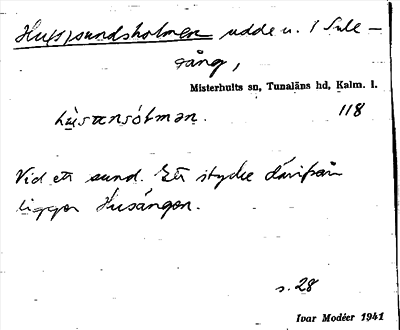 Hussundsholmen udde u. 1 Sule-
sång,
Misterhults sn, Tunaläns hd, Kalm. l.
118
Vid ett sund. Ett stycke därifrån
ligger Husängen.
s. 28
Ivar Modéer 1941